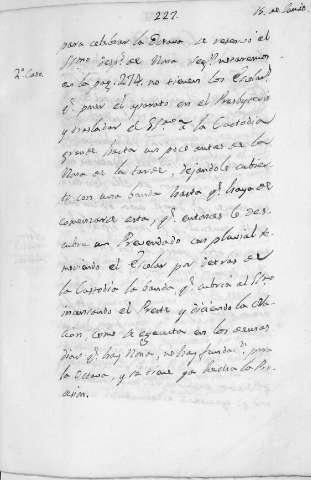 227.
para celebrar la Octava se reservó el
SSmo desps. de Nona segn. notaremos
2o. Caso
en la pag. 274. no tienen los Escolars.
q. poner el aparato en el Presbyterio
y trasladar el SSmo a la Custodia
grande hasta un poco antes de la
Nona de la tarde, dejandole cubier-
to con una banda hasta q. haya de
comenzarse esta, q. entonces le des-
cubre un Prevendado con pluvial re-
moviendo el Escolar por detras de
la Custodia la banda q. cubria al SSmo
incensando el Preste y diciendo la Ora-
cion, como se egecuta en los demas
dias q. hay Nona, no hay para
la Octava, y se tiene ya hecha la Pro-
cesion.